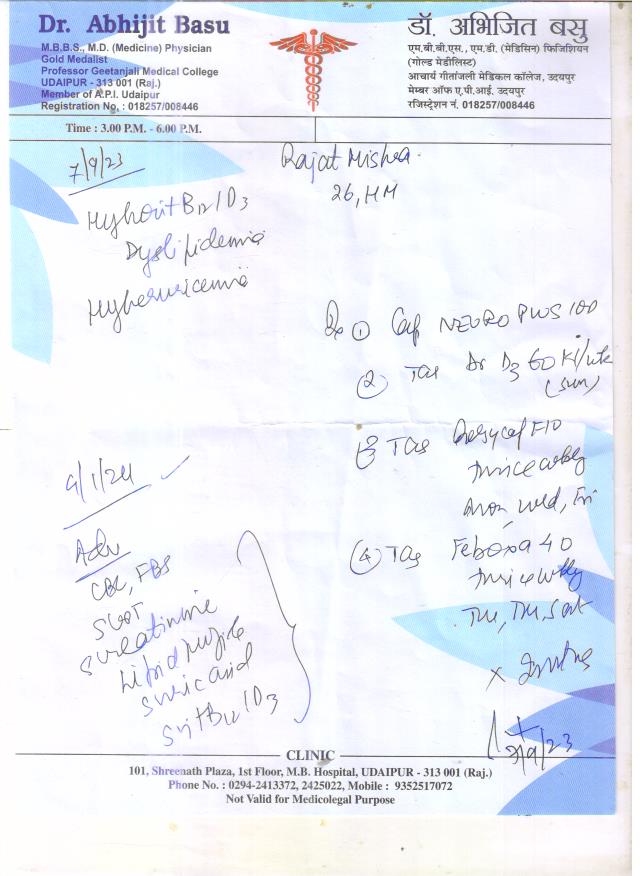 Dr. Abhijit Basu
M.B.B.S., M.D. (Medicine) Physician
Gold Medalist
Professor Geetanjali Medical College
UDAIPUR - 313 001 (Raj.)
Member of A.P.I. Udaipur
Registration No. : 018257/008446
डॉ. अभिजित बसु
एम.बी.बी.एस., एम.डी. (मेडिसिन) फिजिशियन
(गोल्ड मेडीलिस्ट)
आचार्य गीतांजली मेडिकल कॉलेज, उदयपुर
मेम्बर ऑफ ए.पी.आई. उदयपुर
रजिस्ट्रेशन नं. 018257/008446
Time : 3.00 P.M. - 6.00 P.M.
7/9/23
Rajat Mishra
26, HM
B12/D3
Dyslipidemia
Hyperuricemia
Rx ① Cap NEURO PLUS 100
② Tab D3 60 K/wk
(sun)
③ Tab F10
thrice wkly
mon, wed, Fri
④ Tab Feboxa 40
thrice wkly
Tu, Thu, Sat
9/1/24
Adv
CBC, FBS
SGOT
S creatinine
Lipid profile
S uric acid
S vit B12/D3
7/9/23
CLINIC
101, Shreenath Plaza, 1st Floor, M.B. Hospital, UDAIPUR - 313 001 (Raj.)
Phone No. : 0294-2413372, 2425022, Mobile : 9352517072
Not Valid for Medicolegal Purpose